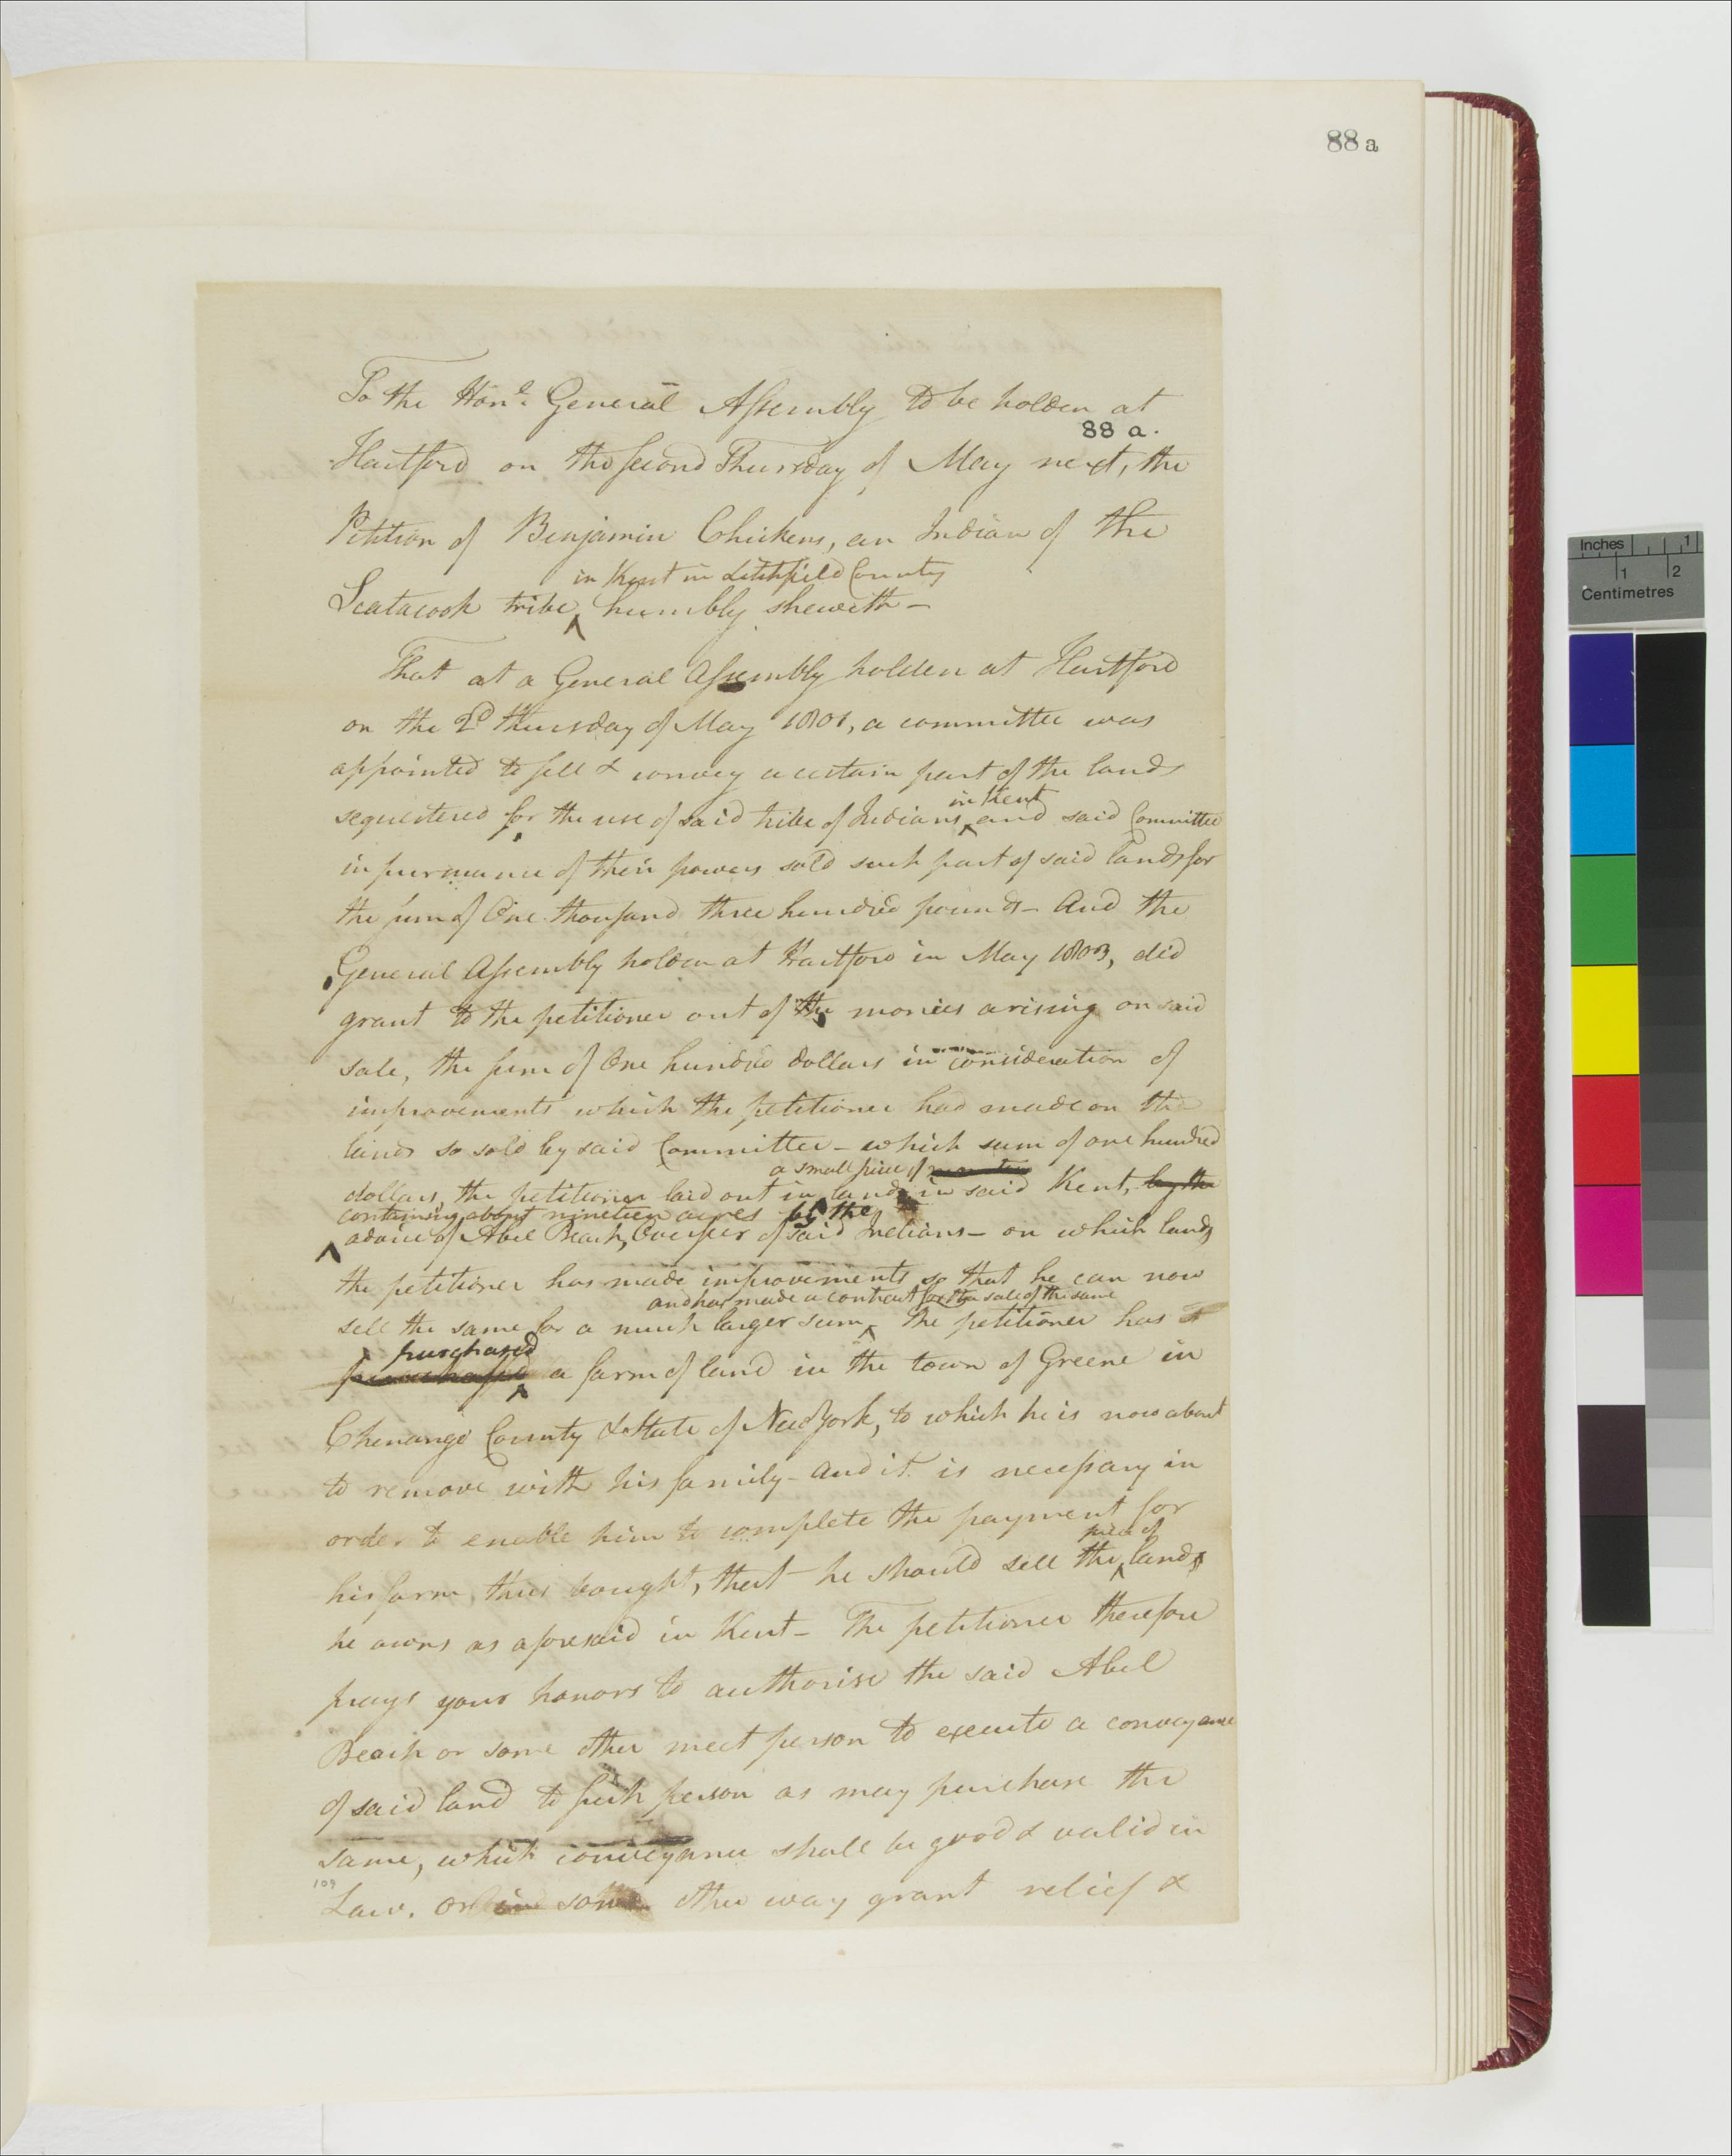 88 a
To the Honl. General Assembly to be holden at
88 a.
Hartford on the second Thursday of May next, the
Petition of Benjamin Chickens, an Indian of the
in Kent in Litchfield County
Scatacook tribe, humbly sheweth—
That at a General Assembly holden at Hartford
on the 2d thursday of May 1801, a committee was
appointed to sell & convey a certain part of the lands
in Kent
sequestered for the use of said tribe of Indians, and said Committee
in pursuance of their powers sold such part of said lands for
the sum of One thousand three hundred pounds— And the
General Assembly holden at Hartford in May 1803, did
grant to the petitioner out of the monies arising on said
sale, the sum of One hundred dollars in consideration of
improvements which the petitioner had made on the
lands so sold by said Committee— which sum of one hundred
a small piece of
dollars, the petitioner laid out in land in said Kent, by the
containing about nineteen acres by the
advice of Abel Beach, Overseer of said Indians— on which lands
the petitioner has made improvements so that he can now
and has made a contract for the sale of the same
sell the same for a much larger sum, The petitioner has
purchased
purchased a farm of land in the town of Greene in
Chenango County & State of New York, to which he is now about
to remove with his family— And it is necessary in
order to enable him to complete the payment for
piece of
his farm thus bought, that he should sell the land
he owns as aforesaid in Kent— The petitioner therefore
prays your honors to authorise the said Abel
Beach or some other meet person to execute a conveyance
of said land to such person as may purchase the
same, which conveyance shall be good & valid in
109
Law. or in some other way grant relief &
Inches 1
1 2
Centimetres